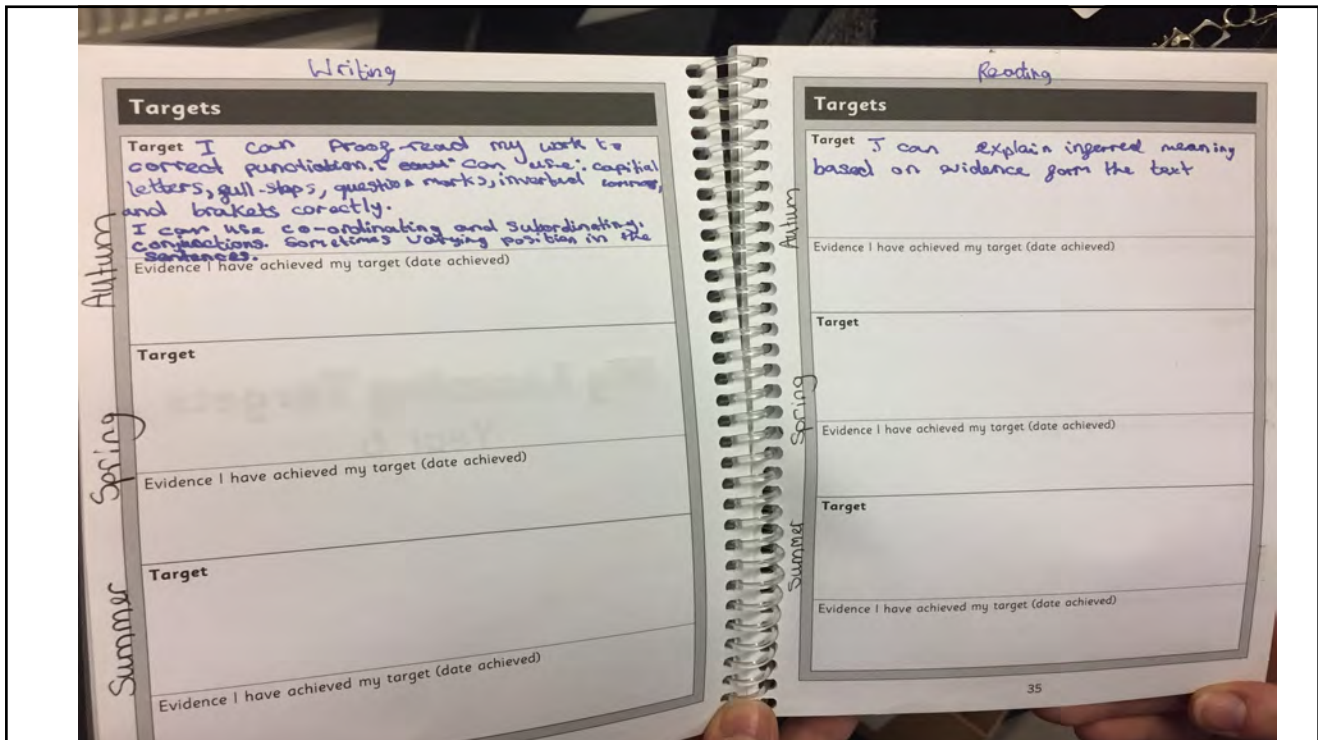 Writing
Targets
Target I can proof-read my work to
correct punctiation. I can use: capitial
letters, full-stops, question marks, inverted commas,
and brakets corectly.
I can use co-ordinating and subordinating.
conjunctions. Sometimes varying position in the
sentences.
Autum
Evidence I have achieved my target (date achieved)
Target
Spring
Evidence I have achieved my target (date achieved)
Target
Summer
Evidence I have achieved my target (date achieved)
Reading
Targets
Target I can explain inferred meaning
based on evidence form the text
Autum
Evidence I have achieved my target (date achieved)
Target
Spring
Evidence I have achieved my target (date achieved)
Target
Summer
Evidence I have achieved my target (date achieved)
35